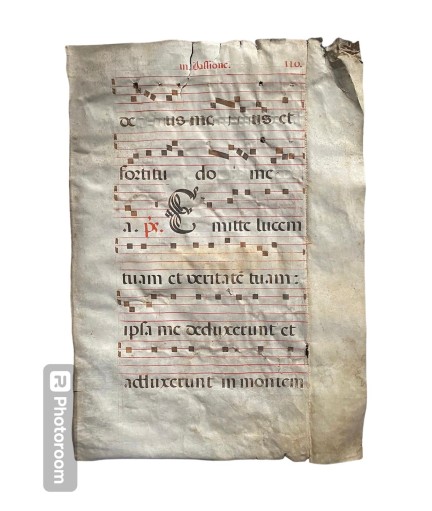 in passione. 110.
de us me us et
fortitu do me
a. ps. Emitte lucem
tuam et veritatē tuam:
ipsa me deduxerunt et
adduxerunt in montem
Photoroom